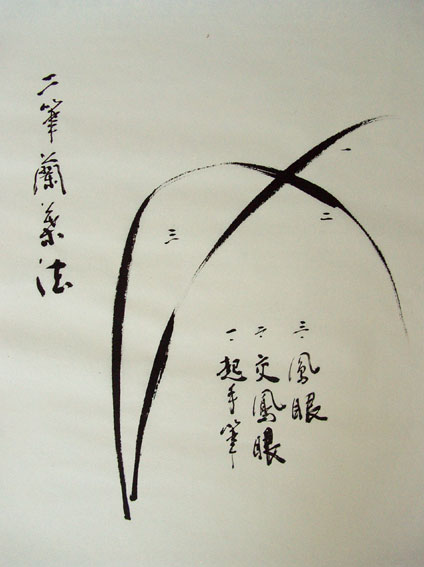 二筆蘭葉法
一
二
三
三、鳳眼
二、交鳳眼
一、起手筆